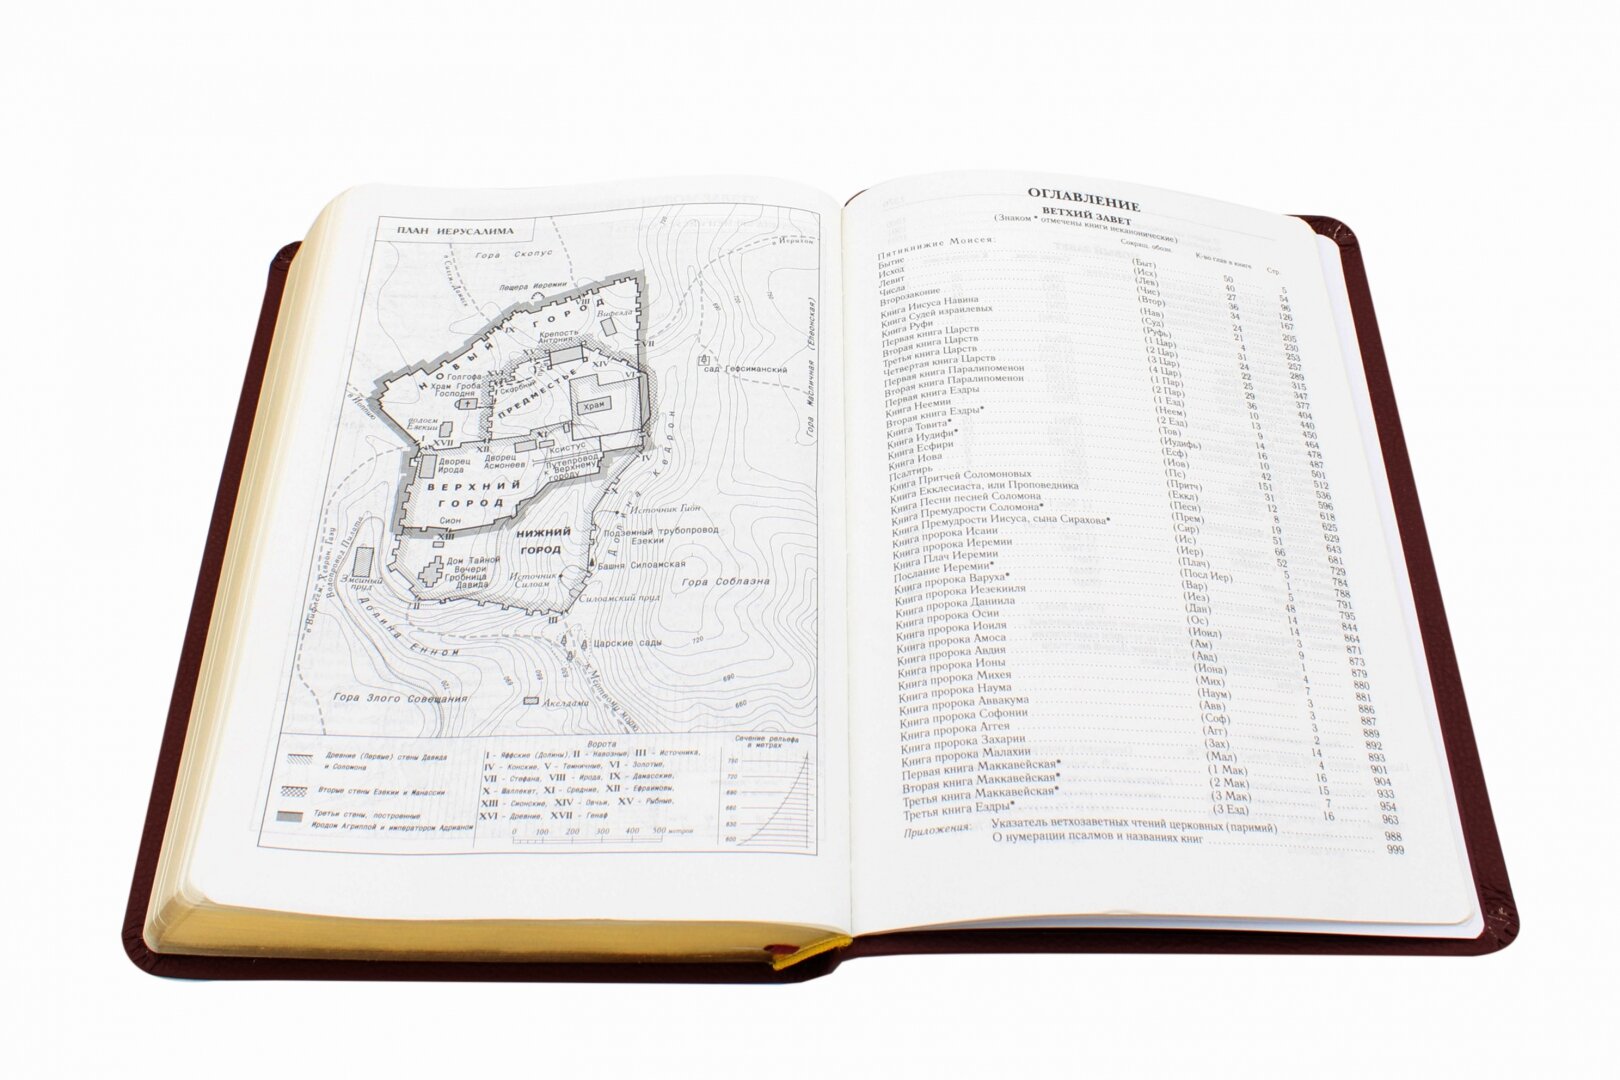 ПЛАН ИЕРУСАЛИМА
Гора Скопус
в Иерихон
в Сихем, Дамаск
Пещера Иеремии
VIII
IX
НОВЫЙ ГОРОД
Вифезда
Крепость
Антония
VII
XIV
VI
XV
XVI
Голгофа
Храм Гроба
Господня
Скорбный путь
ПРЕДМЕСТЬЕ
Храм
сад Гефсиманский
Гора Масличная (Елеонская)
в Иоппию
водоем
Езекии
I
XVII
XII
XI
Ксистус
IV
Дворец
Ирода
Дворец
Асмонеев
Путепровод
к Верхнему
городу
ВЕРХНИЙ
ГОРОД
X
Долина Кедрон
Сион
Источник Гион
XIII
НИЖНИЙ
ГОРОД
Подземный трубопровод
Езекии
Дом Тайной
Вечери
Гробница
Давида
Башня Силоамская
Источник
Силоам
Гора Соблазна
Змеиный
пруд
Водопровод Пилата
в Вифлеем, Хеврон, Газу
Силоамский пруд
II
III
Долина Енном
Царские сады
к Мертвому морю
Гора Злого Совещания
Акелдама
720
690
660
Древние (Первые) стены Давида
и Соломона
Вторые стены Езекии и Манассии
Третьи стены, построенные
Иродом Агриппой и императором Адрианом
Ворота
I - Яффские (Долины), II - Навозные, III - Источника,
IV - Конские, V - Темничные, VI - Золотые,
VII - Стефана, VIII - Ирода, IX - Дамасские,
X - Шаллекет, XI - Средние, XII - Ефраимовы,
XIII - Сионские, XIV - Овчьи, XV - Рыбные,
XVI - Древние, XVII - Генаф
0 100 200 300 400 500 метров
Сечение рельефа
в метрах
750
720
690
660
630
600
ОГЛАВЛЕНИЕ
ВЕТХИЙ ЗАВЕТ
(Знаком * отмечены книги неканонические)
Сокращ. обозн. К-во глав в книге Стр.
Пятикнижие Моисея:
Бытие (Быт) 50 5
Исход (Исх) 40 54
Левит (Лев) 27 96
Числа (Чис) 36 126
Второзаконие (Втор) 34 167
Книга Иисуса Навина (Нав) 24 205
Книга Судей израилевых (Суд) 21 230
Книга Руфи (Руфь) 4 253
Первая книга Царств (1 Цар) 31 257
Вторая книга Царств (2 Цар) 24 289
Третья книга Царств (3 Цар) 22 315
Четвертая книга Царств (4 Цар) 25 347
Первая книга Паралипоменон (1 Пар) 29 377
Вторая книга Паралипоменон (2 Пар) 36 404
Первая книга Ездры (1 Езд) 10 440
Книга Неемии (Неем) 13 450
Вторая книга Ездры* (2 Езд) 9 464
Книга Товита* (Тов) 14 478
Книга Иудифи* (Иудифь) 16 487
Книга Есфири (Есф) 10 501
Книга Иова (Иов) 42 512
Псалтирь (Пс) 151 536
Книга Притчей Соломоновых (Притч) 31 596
Книга Екклесиаста, или Проповедника (Еккл) 12 618
Книга Песни песней Соломона (Песн) 8 625
Книга Премудрости Соломона* (Прем) 19 629
Книга Премудрости Иисуса, сына Сирахова* (Сир) 51 643
Книга пророка Исаии (Ис) 66 681
Книга пророка Иеремии (Иер) 52 729
Книга Плач Иеремии (Плач) 5 784
Послание Иеремии* (Посл Иер) 1 788
Книга пророка Варуха* (Вар) 5 791
Книга пророка Иезекииля (Иез) 48 795
Книга пророка Даниила (Дан) 14 844
Книга пророка Осии (Ос) 14 864
Книга пророка Иоиля (Иоил) 3 871
Книга пророка Амоса (Ам) 9 873
Книга пророка Авдия (Авд) 1 879
Книга пророка Ионы (Иона) 4 880
Книга пророка Михея (Мих) 7 881
Книга пророка Наума (Наум) 3 886
Книга пророка Аввакума (Авв) 3 887
Книга пророка Софонии (Соф) 3 889
Книга пророка Аггея (Агг) 2 892
Книга пророка Захарии (Зах) 14 893
Книга пророка Малахии (Мал) 4 901
Первая книга Маккавейская* (1 Мак) 16 904
Вторая книга Маккавейская* (2 Мак) 15 933
Третья книга Маккавейская* (3 Мак) 7 954
Третья книга Ездры* (3 Езд) 16 963
Приложения: Указатель ветхозаветных чтений церковных (паримий) 988
О нумерации псалмов и названиях книг 999